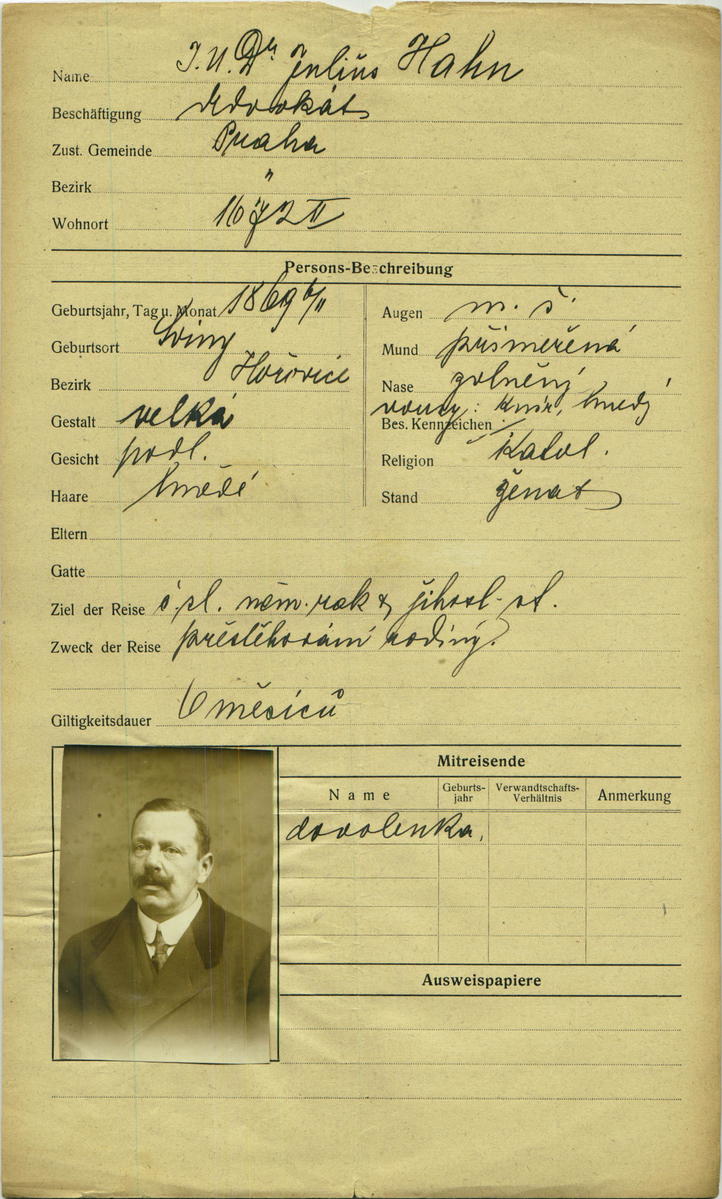 Name J.U.Dr Julius Hahn
Beschäftigung Advokát
Zust. Gemeinde Praha
Bezirk "
Wohnort II
Persons-Beschreibung
Geburtsjahr, Tag u. Monat 1869 6/11
Geburtsort Sviny
Bezirk Hořovice
Gestalt velká
Gesicht podl.
Haare hnědé
Augen m. š.
Mund přiměřená
Nase
vousy: knír, hnědý
Bes. Kennzeichen
Religion Katol.
Stand ženat
Eltern
Gatte
Ziel der Reise č. sl. něm. rak & jihosl. st.
Zweck der Reise přestěhování rodiny.
Giltigkeitsdauer 6 měsíců
Mitreisende
Name Geburts-jahr Verwandtschafts-Verhältnis Anmerkung
dovolenka,
Ausweispapiere